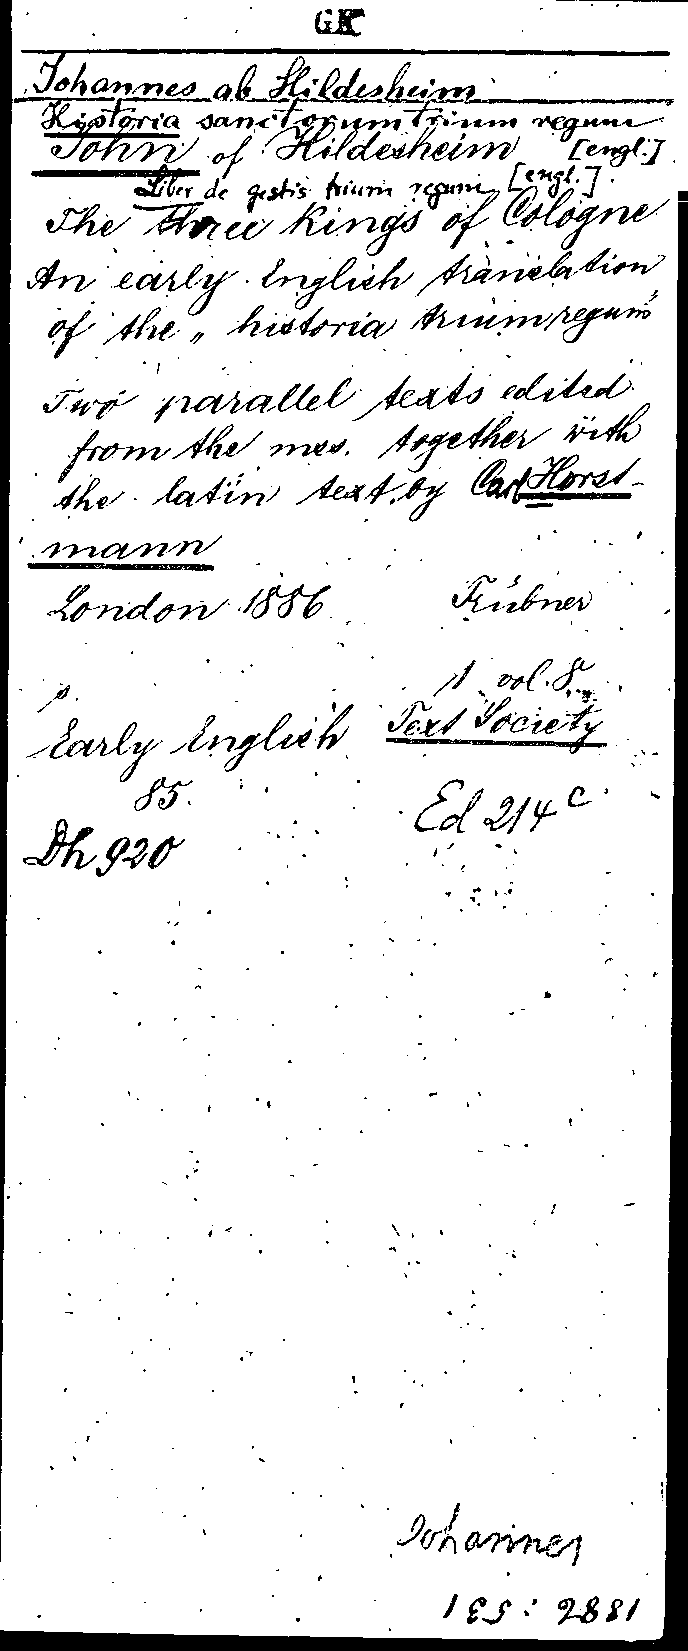 GK
Johannes ab Hildesheim
Historia sanctorum trium regum
John of Hildesheim [engl.]
Liber de gestis trium regum [engl.]
The three kings of Cologne
An early English translation
of the „historia trium regum"
Two parallel texts edited
from the mss. together with
the latin text, by Carl Horst-
mann
London 1886 Trübner
1 vol. 8.
s.
Early English Text Society
85.
Ed 214 c
Dh 920
Johannes
1882 : 531